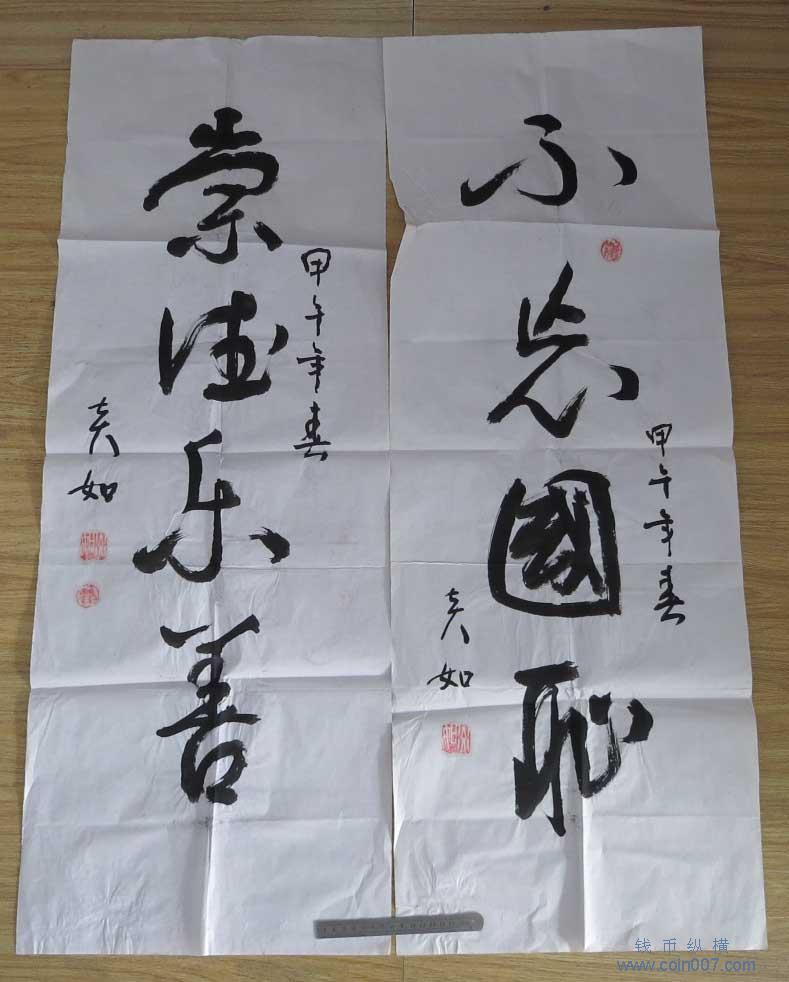 不忘國恥
甲午年春
如
崇德乐善
甲午年春
如
钱币纵横
www.coin007.com